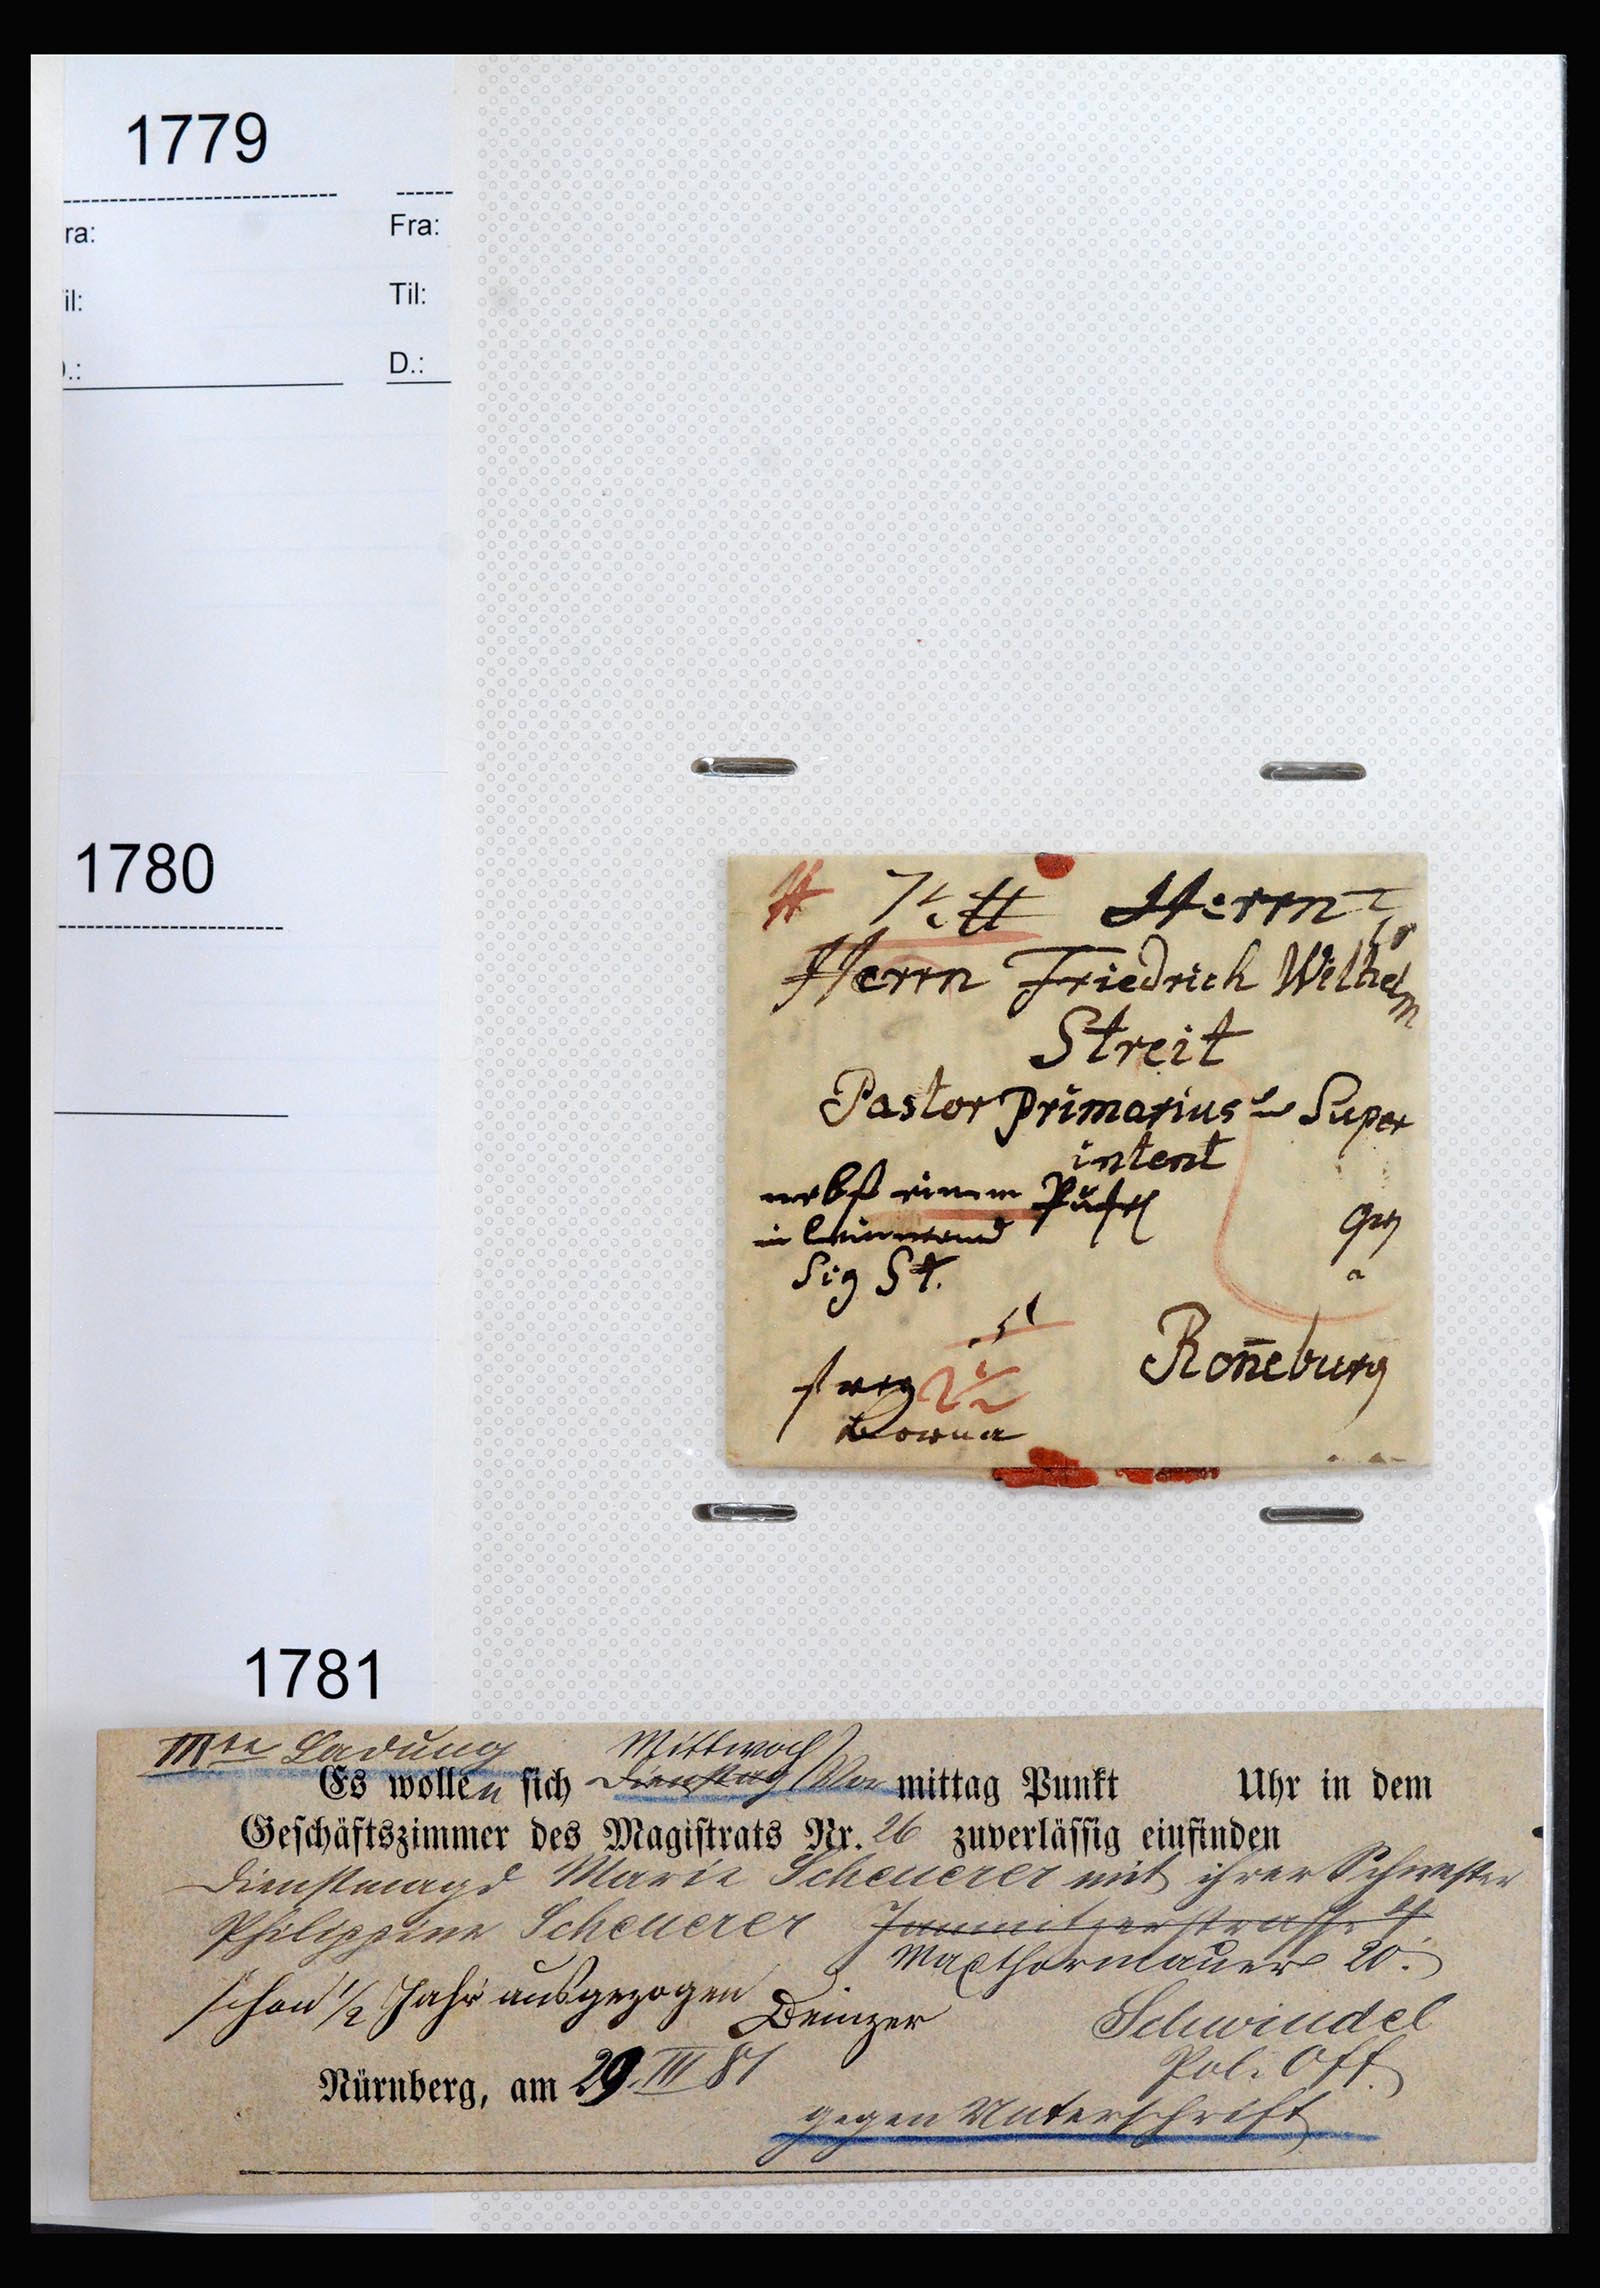 1779
ra:
Fra:
il:
Til:
D.:
1780
Herrn
Herrn Friedrich Wilhelm
Streit
Pastor primarius Super
intent
nebst einem
in Leinwand
Sig St.
Roneburg
Borna
1781
IIIte Ladung
Mittwoch
Es wollen sich Dienstag Vor mittag Punkt Uhr in dem
Geschäftszimmer des Magistrats Nr. 26 zuverlässig einfinden
Dienstmagd Marie Scheuerer mit ihrer Schwester
Philippine Scheuerer Jamnitzerstrasse
Maxthormauer 20.
schon 1/2 Jahr ausgezogen
Deinzer
Schwindel
Pol. Off.
Nürnberg, am 29. III 81
gegen Unterschrift